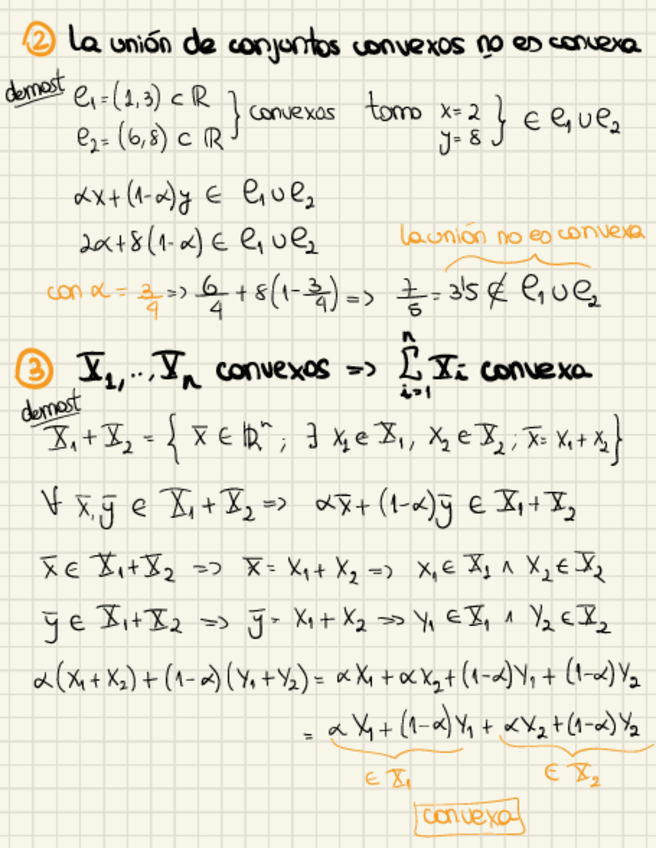 ② La unión de conjuntos convexos no es convexa
demost
C₁ = (1,3) ⊂ ℝ
C₂ = (6,8) ⊂ ℝ } convexos tomo x=2 y=8 } ∈ C₁∪C₂
αx+(1-α)y ∈ C₁∪C₂
2α+8(1-α) ∈ C₁∪C₂
la unión no es convexa
con α = 3/4 => 6/4 + 8(1-3/4) => 7/5 = 3'5 ∉ C₁∪C₂
③ X₁,..,Xₙ convexos => ∑ᵢ₌₁ⁿ Xᵢ convexa
demost
X₁+X₂ = { x̄ ∈ ℝⁿ; ∃ x₁ ∈ X₁, x₂ ∈ X₂; x̄ = x₁+x₂}
∀ x̄,ȳ ∈ X₁+X₂ => αx̄+(1-α)ȳ ∈ X₁+X₂
x̄ ∈ X₁+X₂ => x̄ = x₁+x₂ => x₁ ∈ X₁ ∧ x₂ ∈ X₂
ȳ ∈ X₁+X₂ => ȳ = x₁+x₂ => y₁ ∈ X₁ ∧ y₂ ∈ X₂
α(x₁+x₂)+(1-α)(y₁+y₂) = αx₁+αx₂+(1-α)y₁+(1-α)y₂
= αx₁+(1-α)y₁ + αx₂+(1-α)y₂
∈ X₁ ∈ X₂
convexa